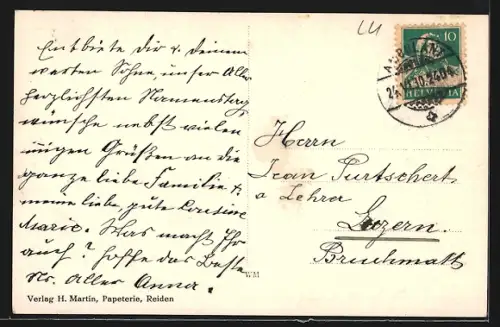 LU
10
HELVETIA
Entbiete Dir & Deinem
werten Sohne, unser Aller
herzlichsten Namenstag
wünsche nebst vielen
innigen Grüßen an die
ganze liebe Familie &
meine liebe, gute Cousine
Marie. Was macht Ihr
auch? hoffe das Beste
Alles Anna.
Herrn
Jean Purtschert
a Lehrer
Luzern.
Bruchmatt
WM
Verlag H. Martin, Papeterie, Reiden